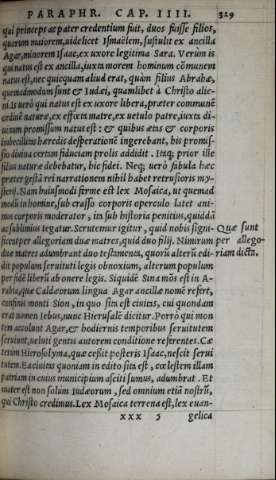 PARAPHR. CAP. IIII. 329
qui princeps ac pater credentium fuit, duos fuisse filios,
quorum maiorem, uidelicet Ismaëlem, sustulit ex ancilla
Agar, minorem Isaac, ex uxore legitima Sara. Verùm is
qui natus est ex ancilla, iuxta morem hominum cōmunem
natus est, nec quicquam aliud erat, quàm filius Abrahæ,
quemadmodum sunt & Iudæi, quamlibet à Christo alie-
ni. Is uerò qui natus est ex uxore libera, præter communē
ordinē naturæ, ex effœta matre, ex uetulo patre, iuxta di-
uinam promissum natus est: & quibus ætas & corporis
imbecillitas hæredis desperationē ingerebant, his promis-
sio diuina certam fiduciam prolis addidit. Itaq; prior ille
filius naturæ debebatur, hic fidei. Neq; uerò fabula hæc
præter gestæ rei narrationem nihil habet retrusioris my-
sterij. Nam huiusmodi ferme est lex Mosaica, ut quemad
modū in homine, sub crasso corporis operculo latet ani-
mus corporis moderator, ita sub historia penitius quiddā
ac sublimius tegatur. Scrutemur igitur, quid nobis signi-
ficent per allegoriam duæ matres, quid duo filij. Nimirum
duæ matres adumbrant duo testamenta, quorū alterū edi-
dit populum seruituti legis obnoxium, alterum populum
per fidē liberū ab onere legis. Siquidē Sina mōs est in A-
rabia, quæ Caldæorum lingua Agar ancillæ nomē refert,
confinis monti Sion, in quo sita est ciuitas, cui quondam
erat nomen Iebus, nunc Hierusalē dicitur. Porrò qui mon
tem accolunt Agar, & hodiernis temporibus seruitutem
seruiunt, ueluti gentis autorem conditione referentes. Cæ
terùm Hierosolyma, quæ cessit posteris Isaac, nescit serui
tutem. Ea ciuitas quoniam in edito sita est, cœlestem illam
patriam in cuius municipium asciti sumus, adumbrat. Et
mater est non solùm Iudæorum, sed omnium etiā nostrū,
qui Christo credimus. Lex Mosaica terrena est, lex euan-
xxx 5 gelica
Quæ sunt
per allego-
riam dicta.